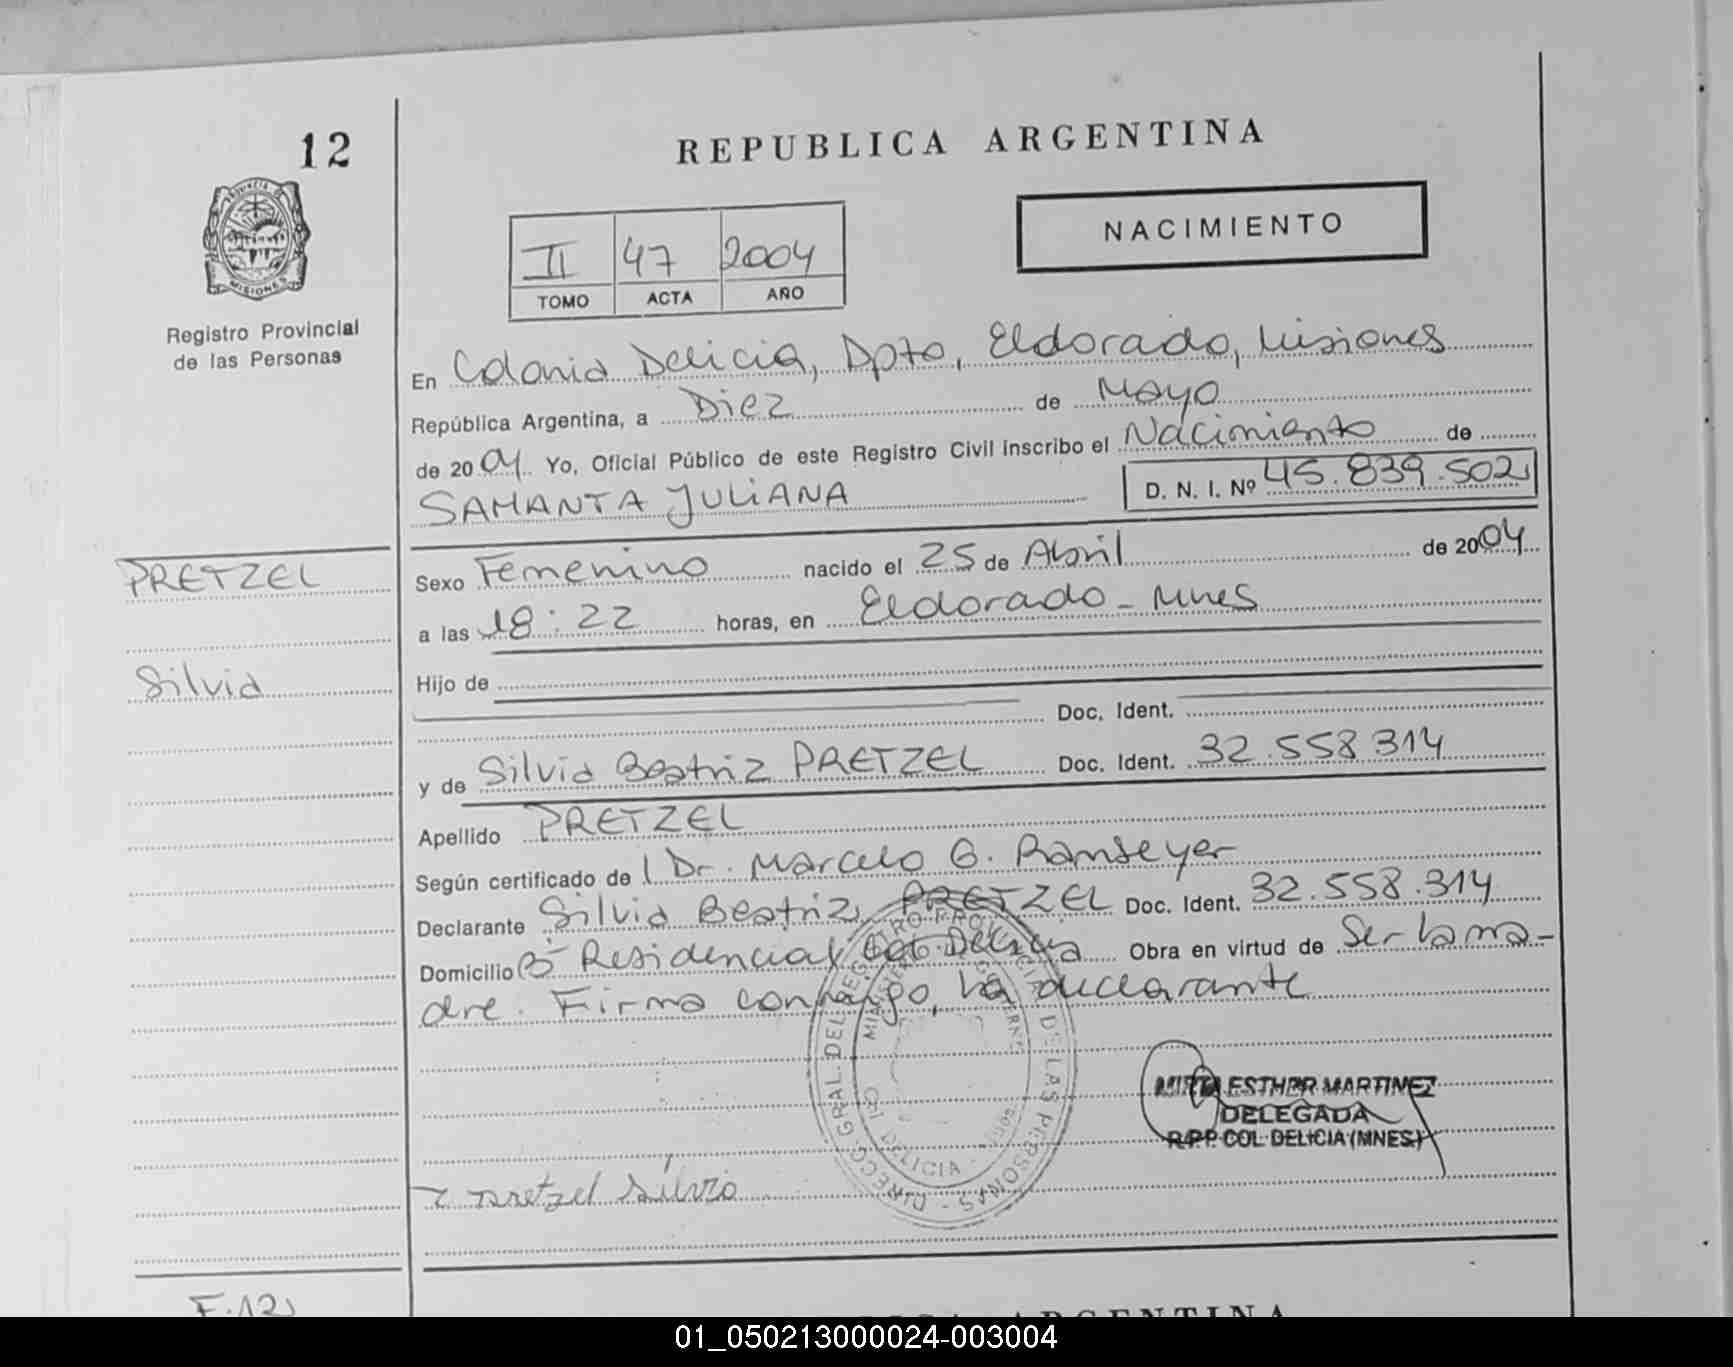 12
REPUBLICA ARGENTINA
PROVINCIA DE
MISIONES
Registro Provincial
de las Personas
NACIMIENTO
II 47 2004
TOMO ACTA AÑO
En Colonia Delicia, Dpto, Eldorado, Misiones
República Argentina, a Diez de Mayo
de 2004 Yo, Oficial Público de este Registro Civil inscribo el Nacimiento de
SAMANTA JULIANA D. N. I. Nº 45.839.502
PRETZEL
Silvia
Sexo Femenino nacido el 25 de Abril de 2004
a las 18:22 horas, en Eldorado - Mnes
Hijo de
Doc. Ident.
y de Silvia Beatriz PRETZEL Doc. Ident. 32.558.314
Apellido PRETZEL
Según certificado de Dr. Marcelo G. Ramseyer
Declarante Silvia Beatriz PRETZEL Doc. Ident. 32.558.314
Domicilio Bº Residencial Col. Delicia Obra en virtud de Ser la ma-
dre. Firma conmigo, la declarante
DIRECC. GRAL. DEL REGISTRO PROVINCIAL DE LAS PERSONAS
COL. DELICIA
MIRTA ESTHER MARTINEZ
DELEGADA
R.P.P. COL. DELICIA (MNES)
Pretzel Silvia
01_050213000024-003004